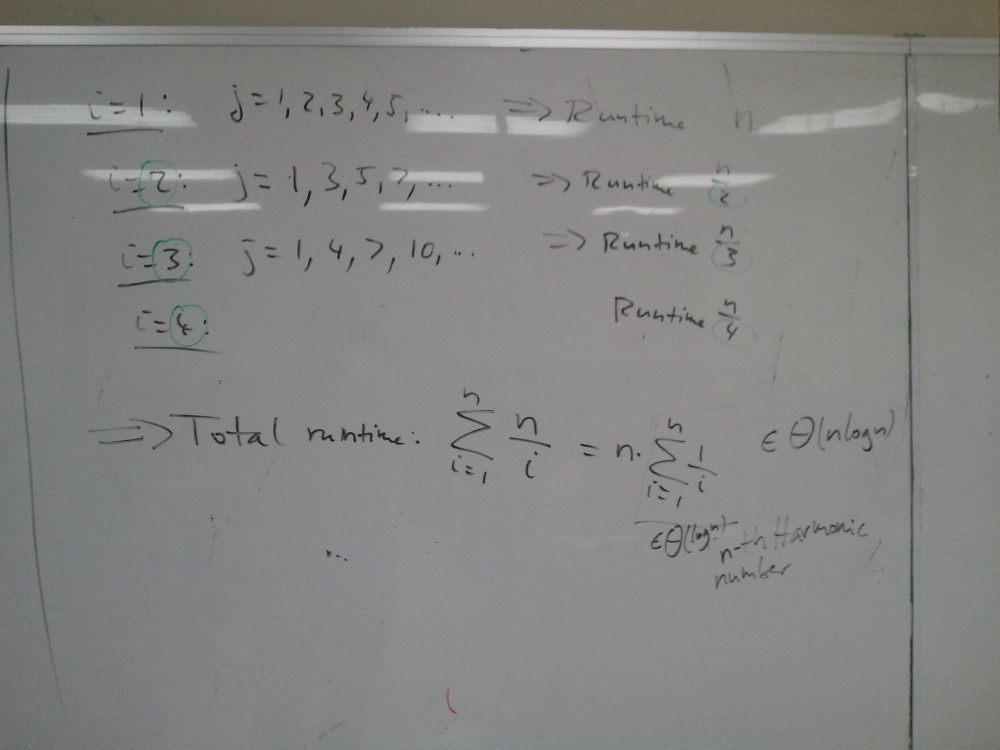 i=1: j=1,2,3,4,5,... => Runtime n
i=2: j=1,3,5,7,... => Runtime n/2
i=3: j=1,4,7,10,... => Runtime n/3
i=4: Runtime n/4
=> Total runtime: ∑_{i=1}^{n} n/i = n·∑_{i=1}^{n} 1/i ∈ Θ(nlogn)
∈Θ(logn) n-th Harmonic
number
...